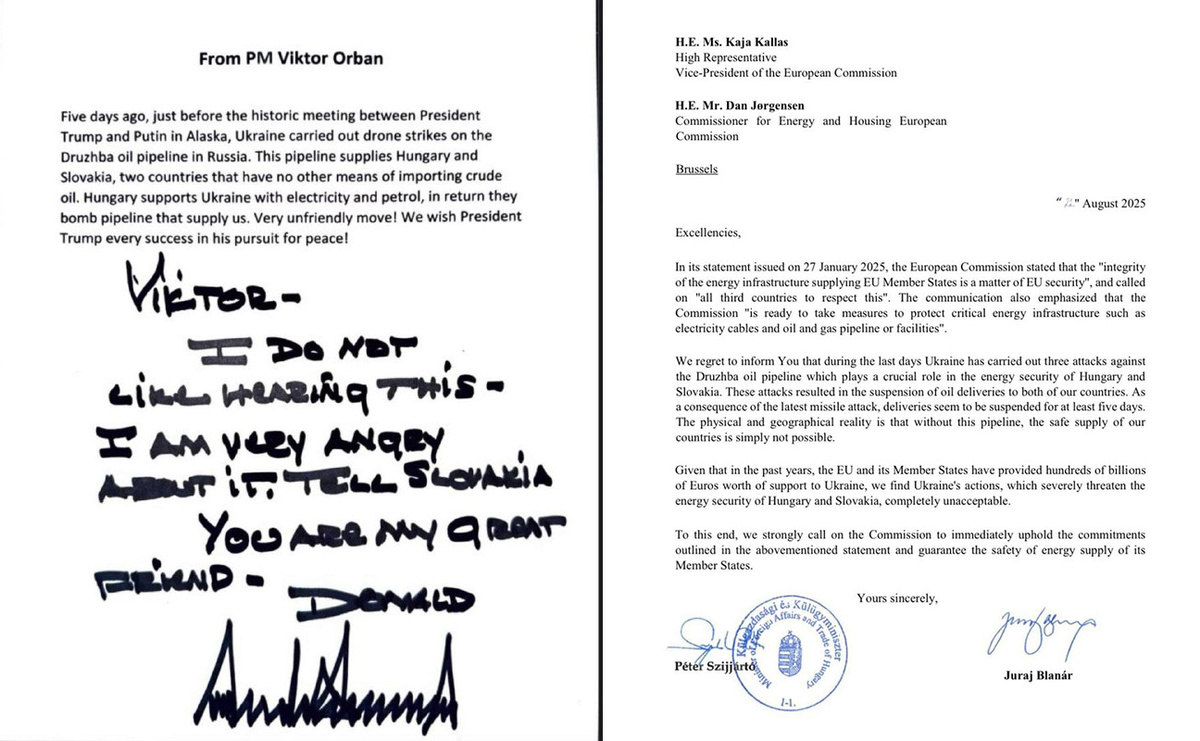 From PM Viktor Orban
Five days ago, just before the historic meeting between President
Trump and Putin in Alaska, Ukraine carried out drone strikes on the
Druzhba oil pipeline in Russia. This pipeline supplies Hungary and
Slovakia, two countries that have no other means of importing crude
oil. Hungary supports Ukraine with electricity and petrol, in return they
bomb pipeline that supply us. Very unfriendly move! We wish President
Trump every success in his pursuit for peace!
VIKTOR-
I DO NOT
LIKE HEARING THIS-
I AM VERY ANGRY
ABOUT IT. TELL SLOVAKIA
YOU ARE MY GREAT
FRIEND-
DONALD
H.E. Ms. Kaja Kallas
High Representative
Vice-President of the European Commission
H.E. Mr. Dan Jørgensen
Commissioner for Energy and Housing European
Commission
Brussels
" " August 2025
Excellencies,
In its statement issued on 27 January 2025, the European Commission stated that the "integrity
of the energy infrastructure supplying EU Member States is a matter of EU security", and called
on "all third countries to respect this". The communication also emphasized that the
Commission "is ready to take measures to protect critical energy infrastructure such as
electricity cables and oil and gas pipeline or facilities".
We regret to inform You that during the last days Ukraine has carried out three attacks against
the Druzhba oil pipeline which plays a crucial role in the energy security of Hungary and
Slovakia. These attacks resulted in the suspension of oil deliveries to both of our countries. As
a consequence of the latest missile attack, deliveries seem to be suspended for at least five days.
The physical and geographical reality is that without this pipeline, the safe supply of our
countries is simply not possible.
Given that in the past years, the EU and its Member States have provided hundreds of billions
of Euros worth of support to Ukraine, we find Ukraine's actions, which severely threaten the
energy security of Hungary and Slovakia, completely unacceptable.
To this end, we strongly call on the Commission to immediately uphold the commitments
outlined in the abovementioned statement and guarantee the safety of energy supply of its
Member States.
Yours sincerely,
Péter Szijjártó
Külgazdasági és Külügyminiszter
Minister of Foreign Affairs and Trade of Hungary
1-1.
Juraj Blanár